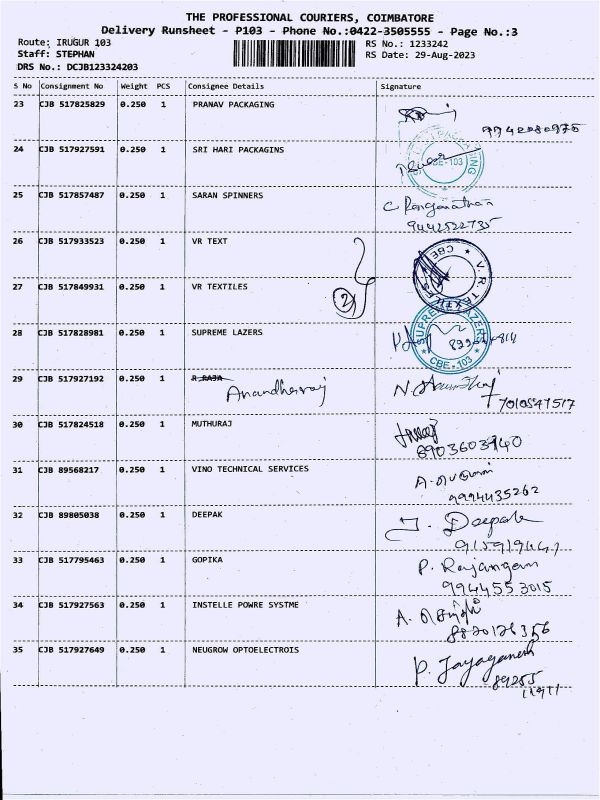 THE PROFESSIONAL COURIERS, COIMBATORE
Delivery Runsheet - P103 - Phone No.:0422-3505555 - Page No.:3
Route: IRUGUR 103 RS No.: 1233242
Staff: STEPHAN RS Date: 29-Aug-2023
DRS No.: DCJB123324203
S No Consignment No Weight PCS Consignee Details Signature
23 CJB 517825829 0.250 1 PRANAV PACKAGING
9942080975
24 CJB 517927591 0.250 1 SRI HARI PACKAGINS
CBE-103
25 CJB 517857487 0.250 1 SARAN SPINNERS C Ranganathan
9442522735
26 CJB 517933523 0.250 1 VR TEXT
V.R. TEXTILES CBE
27 CJB 517849931 0.250 1 VR TEXTILES
2
28 CJB 517828981 0.250 1 SUPREME LAZERS
SUPREME LAZERS CBE-103
29 CJB 517927192 0.250 1 R RAJA
Anandherraj
7010547517
30 CJB 517824518 0.250 1 MUTHURAJ
8903603940
31 CJB 89568217 0.250 1 VINO TECHNICAL SERVICES
9994435262
32 CJB 89805038 0.250 1 DEEPAK J. Deepak
33 CJB 517795463 0.250 1 GOPIKA P. Rajangam
9944553015
34 CJB 517927563 0.250 1 INSTELLE POWRE SYSTME
8820126356
35 CJB 517927649 0.250 1 NEUGROW OPTOELECTROIS P. Jayaganesh
89255